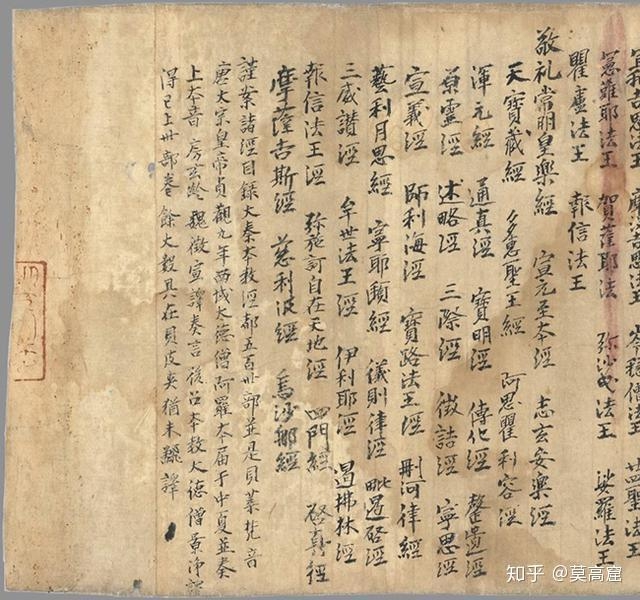 思法王 思法王 僧法王 廿四聖法王
憲難耶法王 賀薩耶法王 弥沙曳法王 娑羅法王
瞿盧法王 報信法王
敬礼常明皇樂經 宣元至本經 志玄安樂經
天寶藏經 多惠聖王經 阿思瞿利容經
渾元經 通真經 寶明經 傳化經 罄遺經
原靈經 述略經 三際經 徵詰經 寧思經
宣義經 師利海經 寶路法王經 刪河律經
藝利月思經 寧耶頲經 儀則律經 毗遏啓經
三威讚經 牟世法王經 伊利耶經 遏拂林經
報信法王經 弥施訶自在天地經 四門經 啓真經
摩薩吉斯經 慈利波經 烏沙郍經
謹案諸經目錄大秦本教經都五百卅部並是貝葉梵音
唐太宗皇帝貞觀九年西域太德僧阿羅本屆于中夏並奏
上本音房玄齡魏徵宣譯奏言後召本教大德僧景淨譯
得已上卅部卷餘大數具在貝皮夾猶未翻譯
知乎 @莫高窟